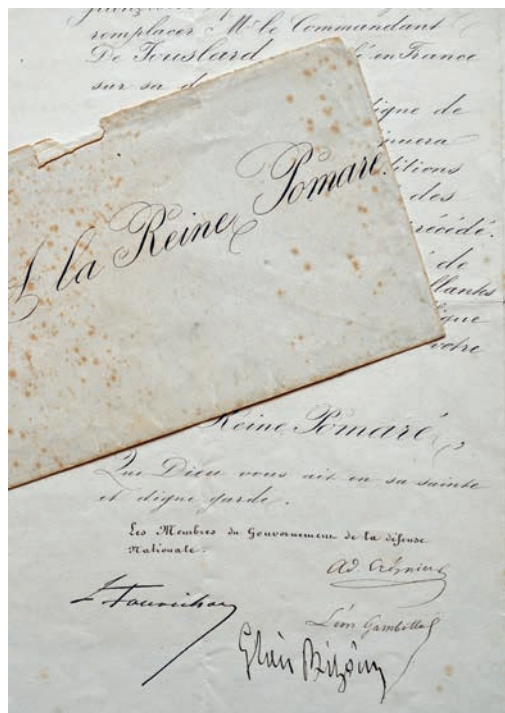 remplacer Mr le Commandant
De Jouslard en France
sur sa
igne de
nuera
ditions
des
récédé.
de
llantes
ique
votre
A la Reine Pomaré.
Reine Pomaré,
Que Dieu vous ait en sa sainte
et digne garde.
Les Membres du Gouvernement de la défense
Nationale.
Ad. Crémieux
L. Fourichon
Léon Gambetta
Glais Bizoin